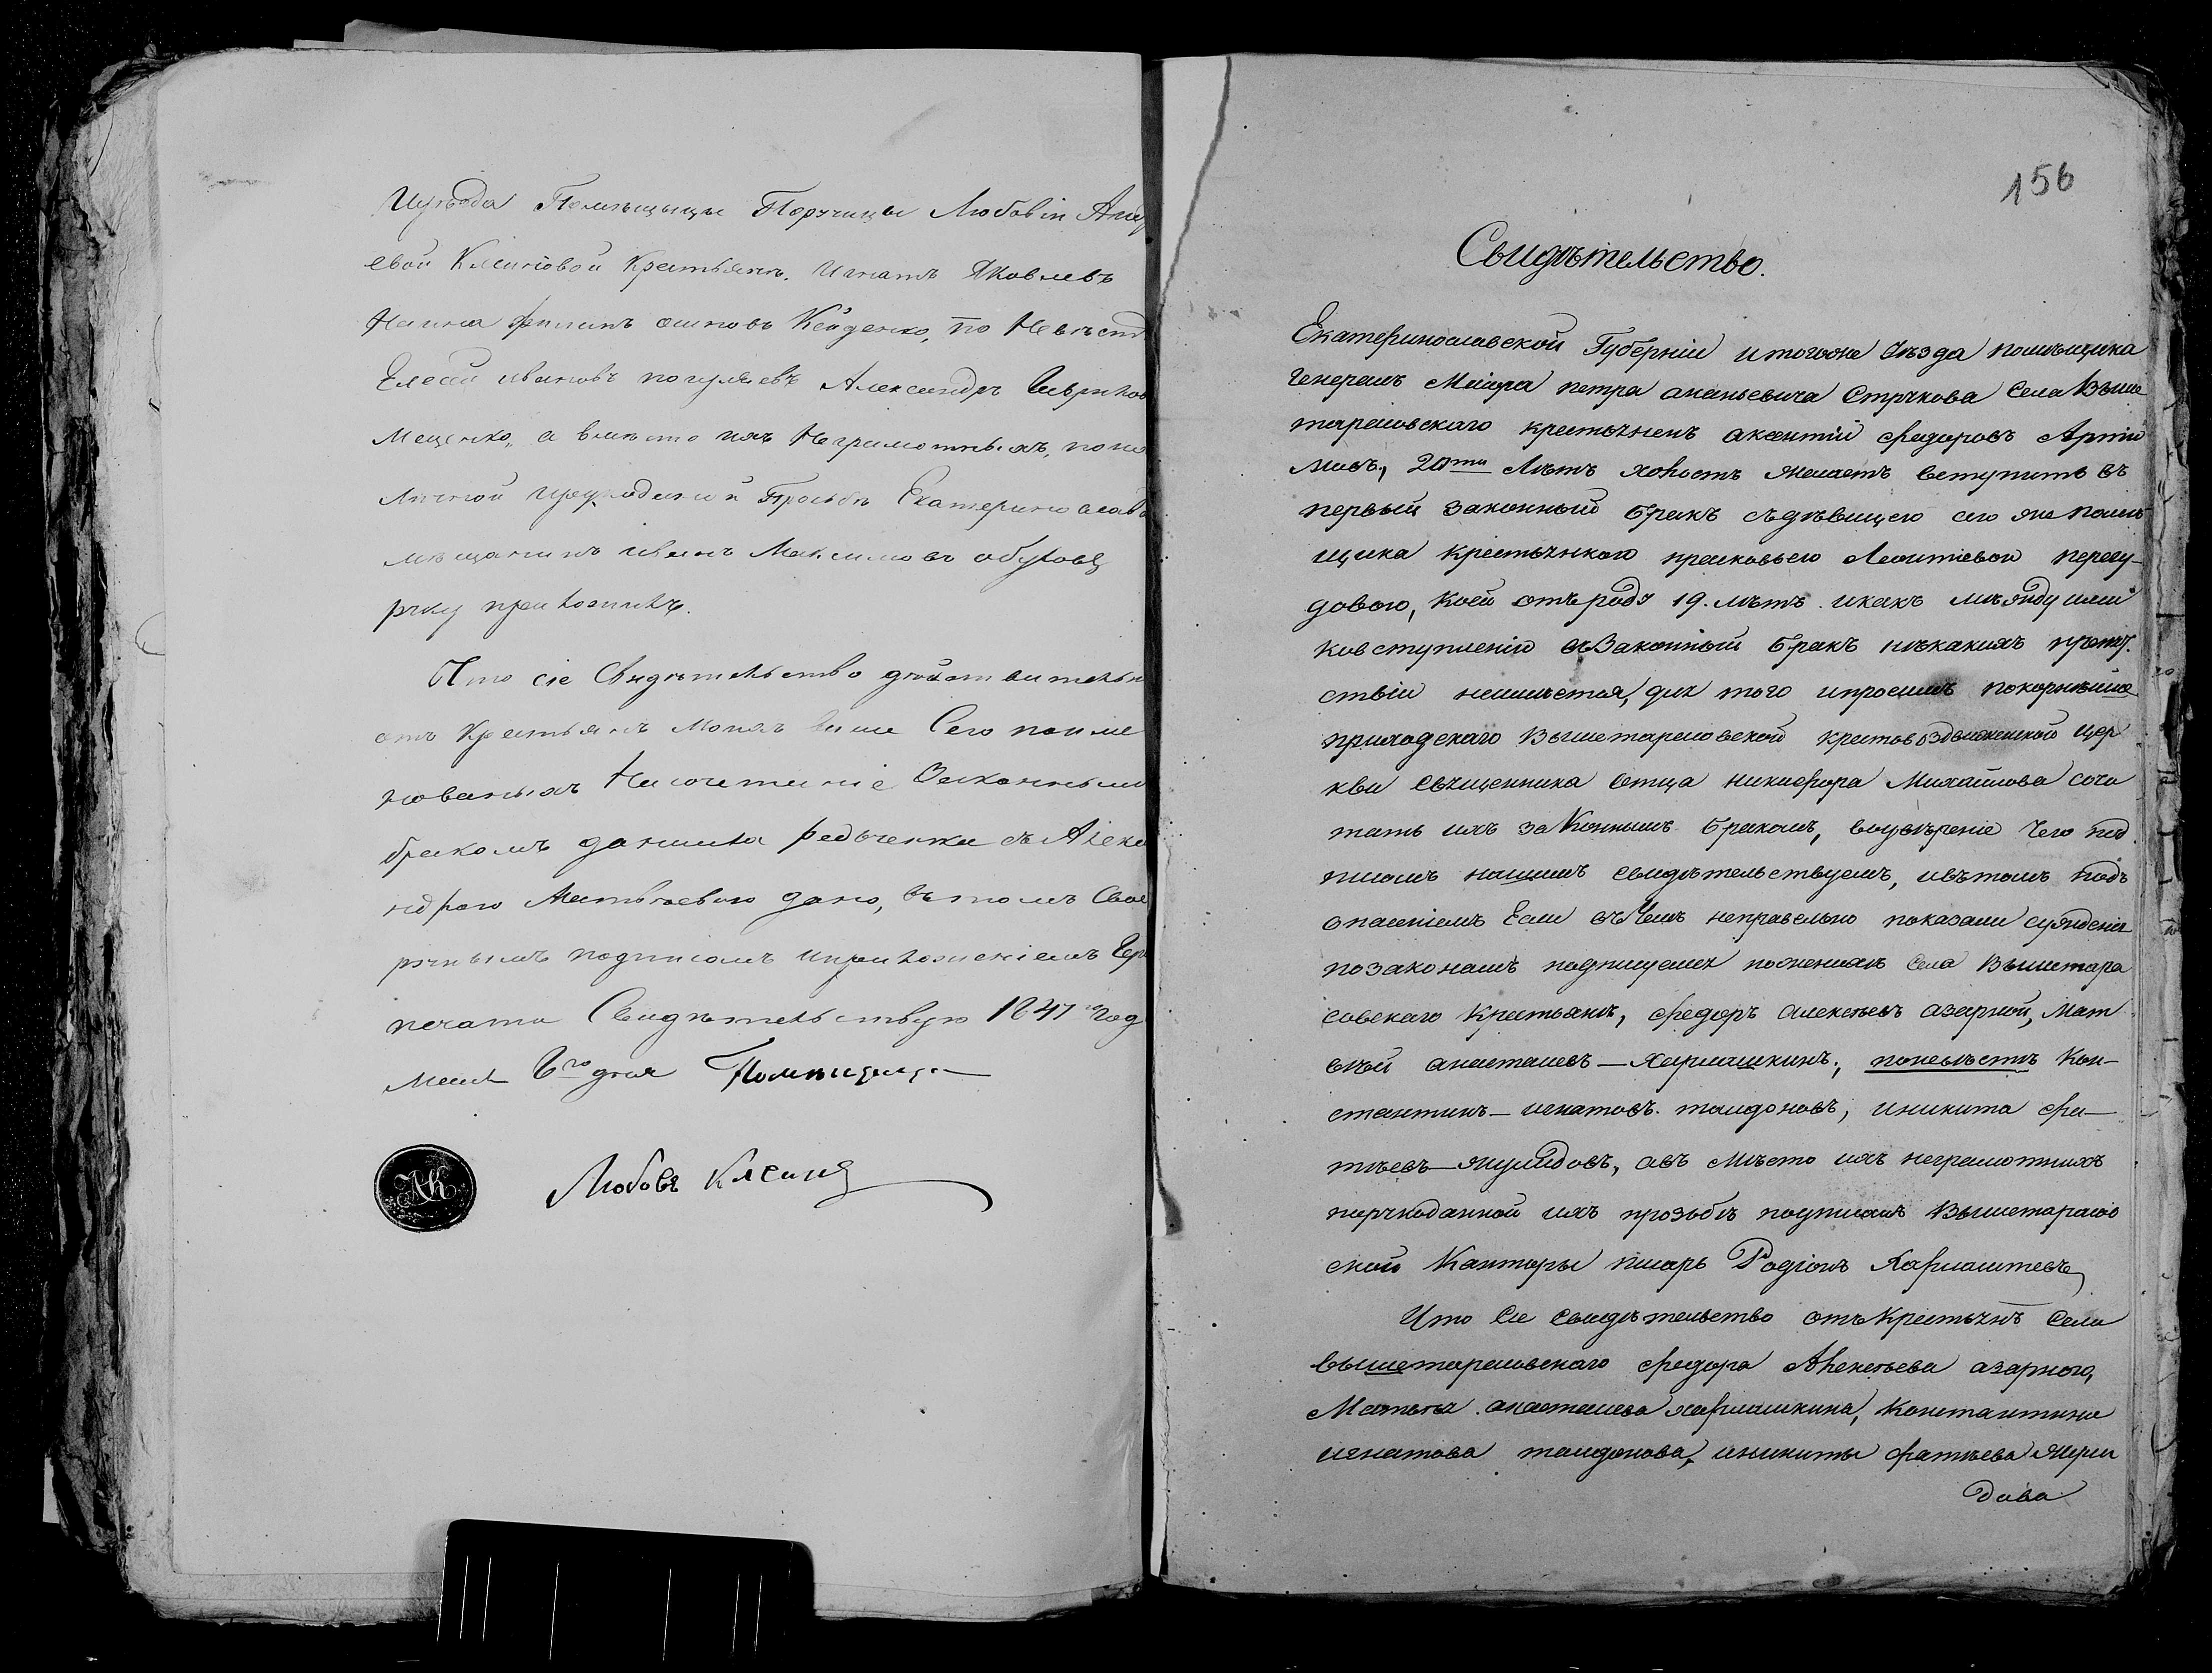 Иуѣзда Помѣщицы Поручицы Любовіи Анд
евой Клевцовой Крестьянъ. Игнатъ Яковлевъ
Филипъ Кейденко, по Невѣстѣ
Елесей ивановъ Александръ
Мещенко, а вмѣсто ихъ Неграмотныхъ, по их
Личной Прозьбѣ Екатеринослав
мѣщанинъ иванъ Максимовъ обуховъ
руку приложилъ.
Что сіе Свидѣтельство дѣйствительн
отъ Крестьянъ Моихъ выше Сего поиме
нованыхъ На сочетаніе Законнымъ
бракомъ данила редьченка съ Алекса
ндрою Матвѣевою дано, въ томъ Свое
ручнымъ подписомъ иприложеніемъ Герб
печати Свидѣтельствую 1847 год
маія 6го дня Помѣщица
ЛК
Любовь Клевцова
156
Свидѣтельство.
Екатеринославской Губерніи итогоже Уѣзда помѣщика
Генералъ Маіора петра ананьевича Струкова Села Выше
тарасовскаго крестьянинъ аксентій федоровъ Артю
мовъ, 20ти Лѣтъ холостъ желаетъ вступить въ
первый законный бракъ съдѣвицею сего же помѣ
щика крестьянкою прасковьею Леонтіевой перегу-
довою, коей отъроду 19. лѣтъ. икакъ мѣжду ими
ковступленію въЗаконный бракъ нѣкакихъ препят.
ствіи неимѣется, для того ипросимъ покорнѣйше
приходскаго Вышетарасовской крестовоздвиженской цер
кви Священника Отца никифора Михайлова соче
тать ихъ законнымъ бракомъ, воувѣреніе Чего под
писомъ нашимъ свидѣтельствуемъ, ивътомъ подъ
опасеніемъ Если въЧемъ неправельно показали сужденія
позаконамъ подписуемся поженихѣ Села Вышетара
совскаго Крестьянѣ, федоръ алексѣевъ азарной, Мат
вѣй анаталіевъ—Харлашкинъ., поневѣстѣ Кон-
стантинъ—игнатовъ. таидоновъ, иникита фа—
тѣевъ—журидовъ, авъ мѣсто ихъ неграмотныхъ
порукоданной ихъ прозьбѣ подписалъ Вышетарасо
ской Канторы писарь Родіонъ Харлаштевъ
Что Сіе свидѣтельство отъКрестьянъ Села
вышетарасовскаго федора Алексѣева азарнога,
Матвѣя анаталіева харлашкина, Константина
игнатова таидонова, иникиты фатѣева Жури
дова